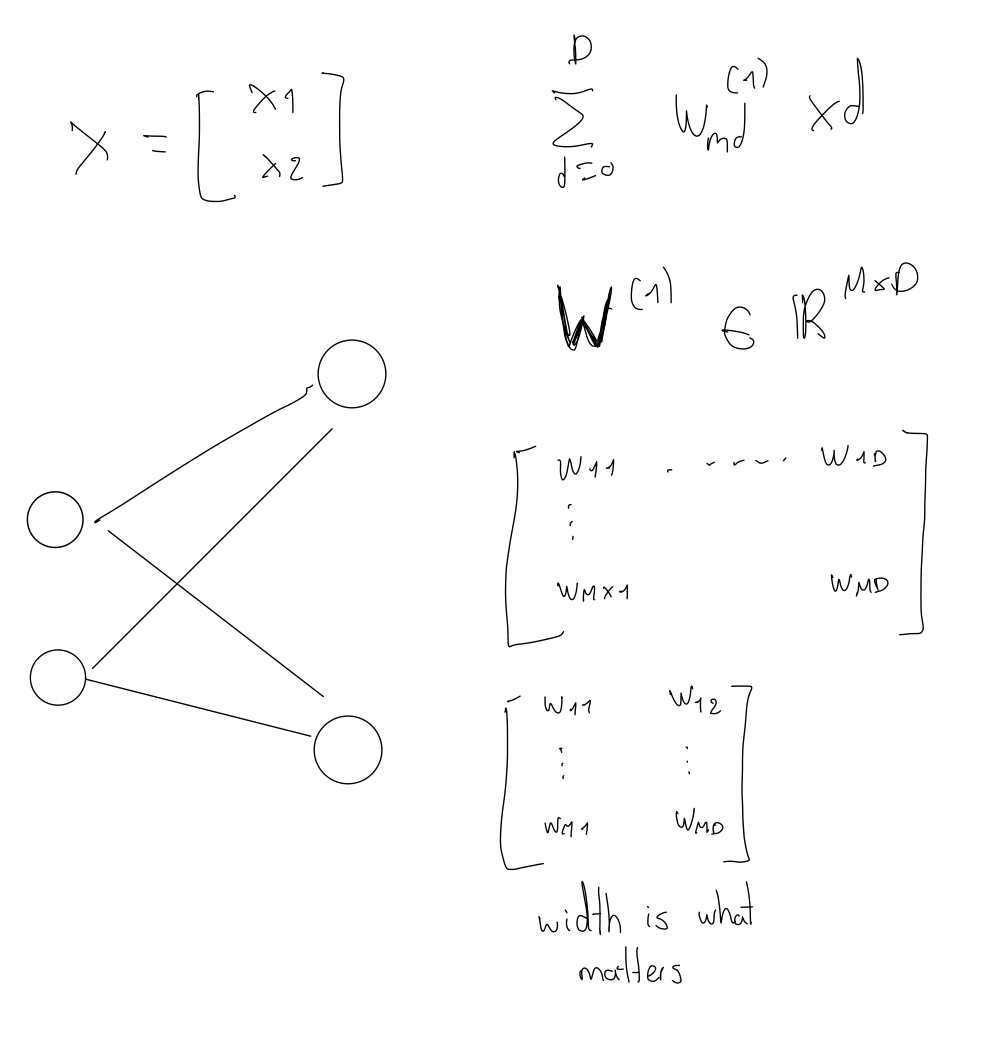 X = [ x1
x2 ]
D
∑ w_md^(1) xd
d=0
W^(1) ∈ ℝ^M×D
[ w11 . - - - - . w1D
⋮
wM×1 wMD ]
[ w11 w12
⋮ ⋮
wM1 wMD ]
width is what
matters